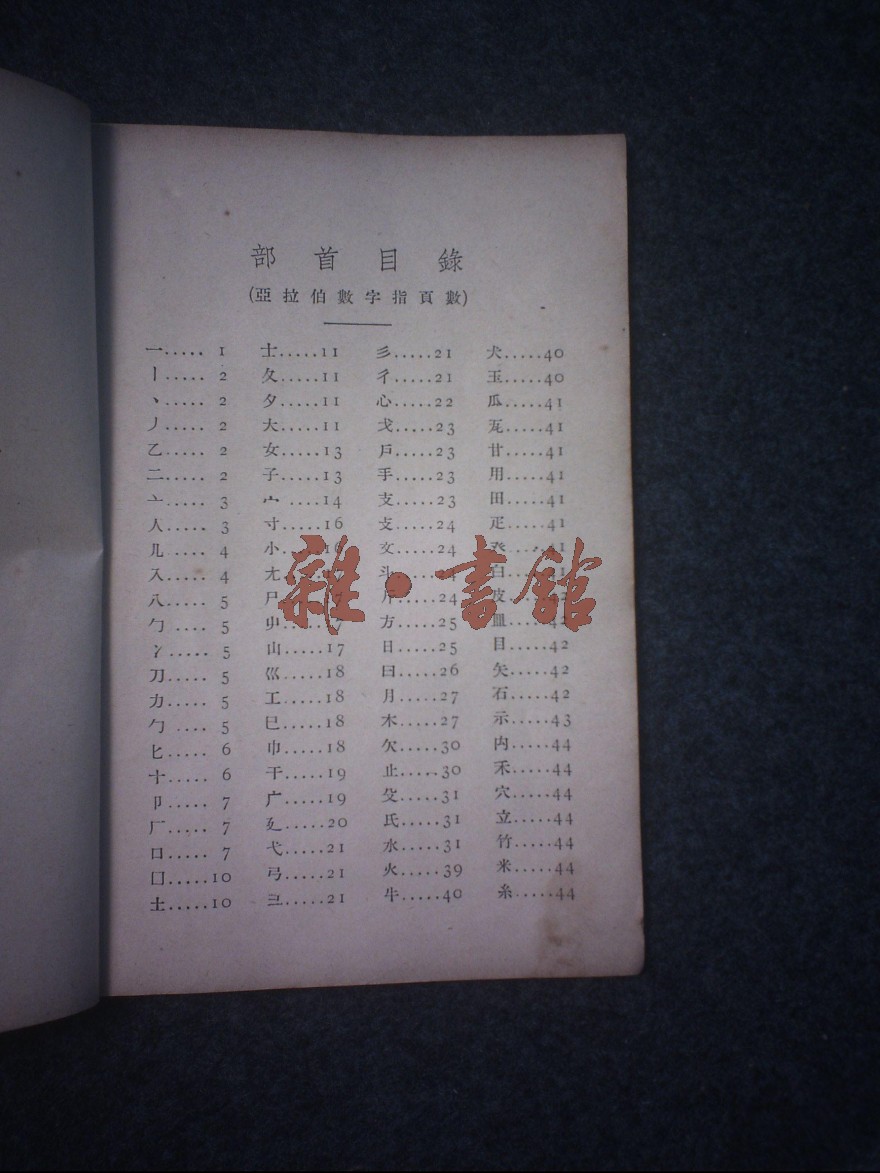 部首目錄
(亞拉伯數字指頁數)
一..... 1 士.....11 彡.....21 犬.....40
丨..... 2 夂.....11 彳.....21 玉.....40
丶..... 2 夕.....11 心.....22 瓜.....41
丿..... 2 大.....11 戈.....23 瓦.....41
乙..... 2 女.....13 戶.....23 甘.....41
二..... 2 子.....13 手.....23 用.....41
亠..... 3 宀.....14 支.....23 田.....41
人..... 3 寸.....16 攴.....24 疋.....41
儿..... 4 小.....16 文.....24 癶.....41
入..... 4 尢..... 斗..... 白.....41
八..... 5 尸..... 斤.....24 皮.....
勹 .... 5 屮.....17 方.....25 皿.....42
冫..... 5 山.....17 日.....25 目.....42
刀..... 5 巛.....18 曰.....26 矢.....42
力..... 5 工.....18 月.....27 石.....42
勹 .... 5 巳.....18 木.....27 示.....43
匕..... 6 巾.....18 欠.....30 内.....44
十..... 6 干.....19 止.....30 禾.....44
卩..... 7 广.....19 殳.....31 穴.....44
厂..... 7 廴.....20 氏.....31 立.....44
口..... 7 弋.....21 水.....31 竹.....44
囗.....10 弓.....21 火.....39 米.....44
土.....10 彐.....21 牛.....40 糸.....44
雜·書館